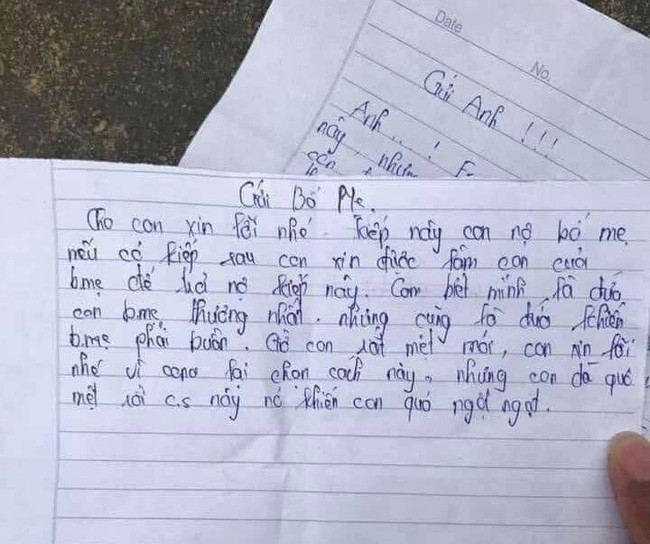 Date
No.
Gửi Anh !!!
Anh...!
nây, nhưng
Gửi Bố Mẹ.
Cho con xin lỗi nhé. Kiếp này con nợ bố mẹ
nếu có kiếp sau con xin được làm con của
b.mẹ để trả nợ kiếp này. Con biết mình là đứa
con b.mẹ thương nhất. nhưng cũng là đứa khiến
b.mẹ phải buồn. Giờ con rất mệt mỏi, con xin lỗi
nhé vì con lại chọn cách này, nhưng con đã quá
mệt rồi c.s này nó khiến con quá ngột ngạt.